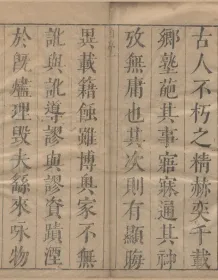 古人不朽之精赫奕千載
鄉塾葹其事寤寐通其神
攷無庸也其次則有顯晦
異載籍蝕雖博奥家不無
訛與訛導謬與謬資蹟湮
於既爐理毀夫絲來咊物